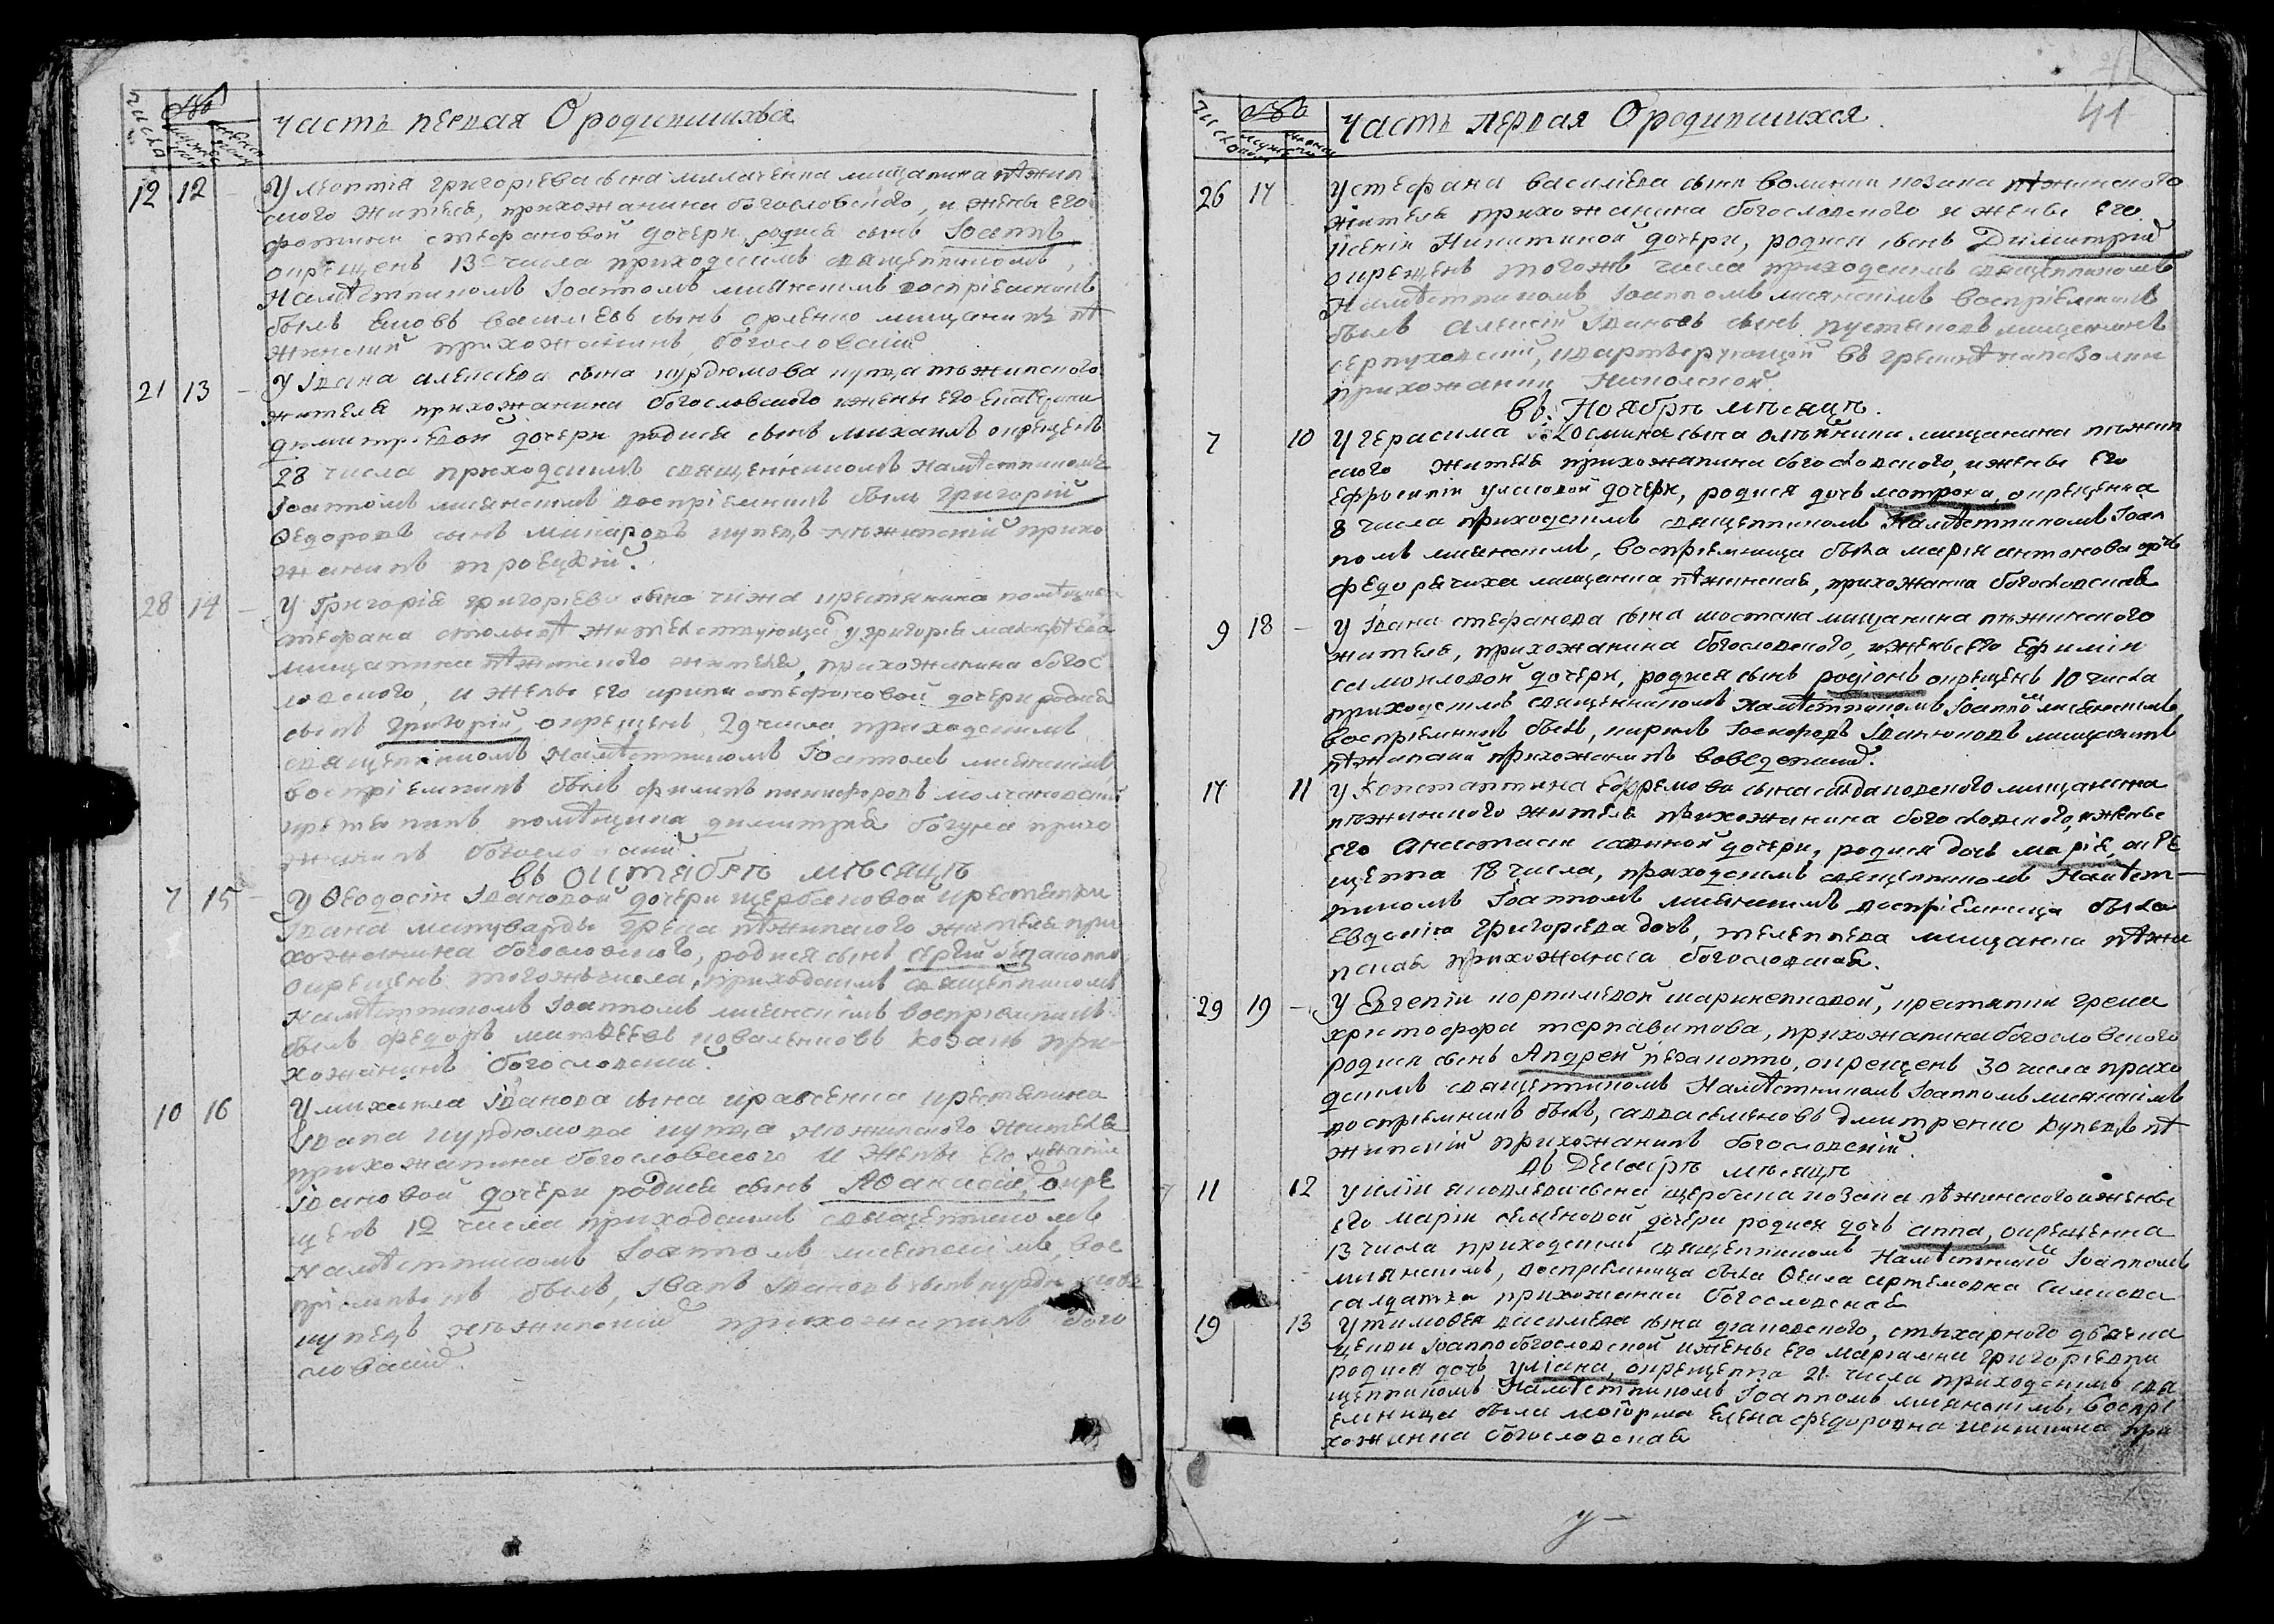 числа №№ мужеска женска Часть первая О родившихся
12 12 – У леонтія григоріева сына милаченка мищанина нѣжин
ского жителя, прихожанина богословского, и жены его
фотинии стефановой дочери родися сынъ Іоаннъ
окрещенъ 13 числа приходскимъ священникомъ,
Намѣстникомъ Іоанномъ воспріемникъ
былъ василіевъ сынъ орленко мищанинъ нѣ
жинский прихожанинъ богословский
21 13 – У Івана алексіева сына курдюмова купца нѣжинского
жителя прихожанина богословского и жены его екатерини
димитріевой дочери родися сынъ михаилъ окрещенъ
28 числа приходскимъ священникомъ намѣстникомъ
Іоанномъ воспріемникъ былъ григорій
Ѳедоровъ сынъ макаровъ купецъ нѣжинскій прихо
жанинъ троецкій.
28 14 – У Григорія григоріева сына чижа крестянина помѣщика
стефана жителствующаго у григорія
мищанина нѣжинского жителя, прихожанина богос
ловского, и жены его ирини стефановой дочери родися
сынъ григорій, окрещенъ 29 числа приходскимъ
священникомъ Намѣстникомъ Іоанномъ
воспріемникъ былъ филипъ никифоровъ молчановский
крестянинъ помѣщика димитрія богуна прихо
жанинъ богословский.
въ октябрѣ мѣсяцѣ
7 15 – У Ѳеодосіи Івановой дочери щербаковой крестянки
Івана грека нѣжинского жителя при
хожанина богословского, родися сынъ сергій незаконно,
окрещенъ тогожъ числа, приходскимъ священникомъ
намѣстникомъ Іоанномъ воспріемникъ
былъ федоръ матвеевъ коваленковъ козакъ при-
хожанинъ богословский.
10 16 У михаила Іванова сына кравченка крестянина
Івана курдюмова купца нѣжинского жителя
прихожанина богословского и жены его
Івановой дочери родися сынъ Аѳанасій, окре
щенъ 12 числа приходскимъ священникомъ
намѣстникомъ Іоанномъ вос
пріемникъ былъ, Іванъ Івановъ сынъ курдюмовъ
купецъ нѣжинский прихожанинъ бого
словский.
41
числа №№ мужеска женска Часть первая О родившихся.
26 17 У стефана василіева сына волинки козака нѣжинского
жителя прихожанина богословского и жены его
Ксеніи Никитиной дочери, родися сынъ Димитрій
окрещенъ тогожъ числа приходскимъ священникомъ
Намѣстникомъ Іоанномъ воспріемникъ
былъ алексій Івановъ сынъ пустяковъ мищанинъ
серпуховский, квартерующий въ
прихожанинъ Николской.
въ Ноябрѣ мѣсяцѣ.
7 10 У герасима космина сына олѣйника мищанина нѣжин
ского жителя прихожанина богословского, и жены его
ефросиніи дочери, родися дочъ мотрона, окрещенна
8 числа приходскимъ священникомъ Намѣстникомъ Іоан
номъ, воспріемница была марія антонова дочъ
федоречиха мищанка нѣжинская, прихожанка богословская
9 18 – У Івана стефанова сына шостака мищанина нѣжинского
жителя, прихожанина богословского, и жены его Ефиміи
самойловой дочери, родися сынъ родіонъ окрещенъ 10 числа
приходскимъ священникомъ намѣстникомъ Іоанномъ
воспріемникъ былъ, кирилъ Івановъ мищанинъ
нѣжинский прихожанинъ воведенский.
17 11 У Константина Ефремова сына мищанина
нѣжинского жителя прихожанина богословского, и жены
его Анастасіи савиной дочери, родися дочъ марія, окре
щенна 18 числа, приходскимъ священникомъ Намѣст-
никомъ Іоанномъ воспріемница была
Евдокія григоріева дочъ, мищанка нѣжи
нская прихожанка богословская.
29 19 – У Евгеніи крестянки грека
христофора прихожанина богословского
родися сынъ Андрей незаконно, окрещенъ 30 числа прихо
дскимъ священникомъ Намѣстникомъ Іоанномъ
воспріемникъ былъ, савва семеновъ дмитренко купецъ нѣ
жинский прихожанинъ богословский.
въ Декабрѣ мѣсяцѣ
11 12 У иліи яковлева сына щербака козака нѣжинского и жены
его маріи семеновой дочери родися дочъ анна, окрещенна
13 числа приходскимъ священникомъ Намѣстникомъ Іоанномъ
воспріемница была Ѳекла артемовна
салдатка прихожанка богословская
19 13 У тимоѳея василіева сына стихарного дячка
церкви Іоаннобогословской и жены его маріамни григоріевни
родися дочъ уліана, окрещенна 21 числа приходскимъ свя
щенникомъ Намѣстникомъ Іоанномъ воспрі
емница была маіорша елена федоровна при
хожанка богословская